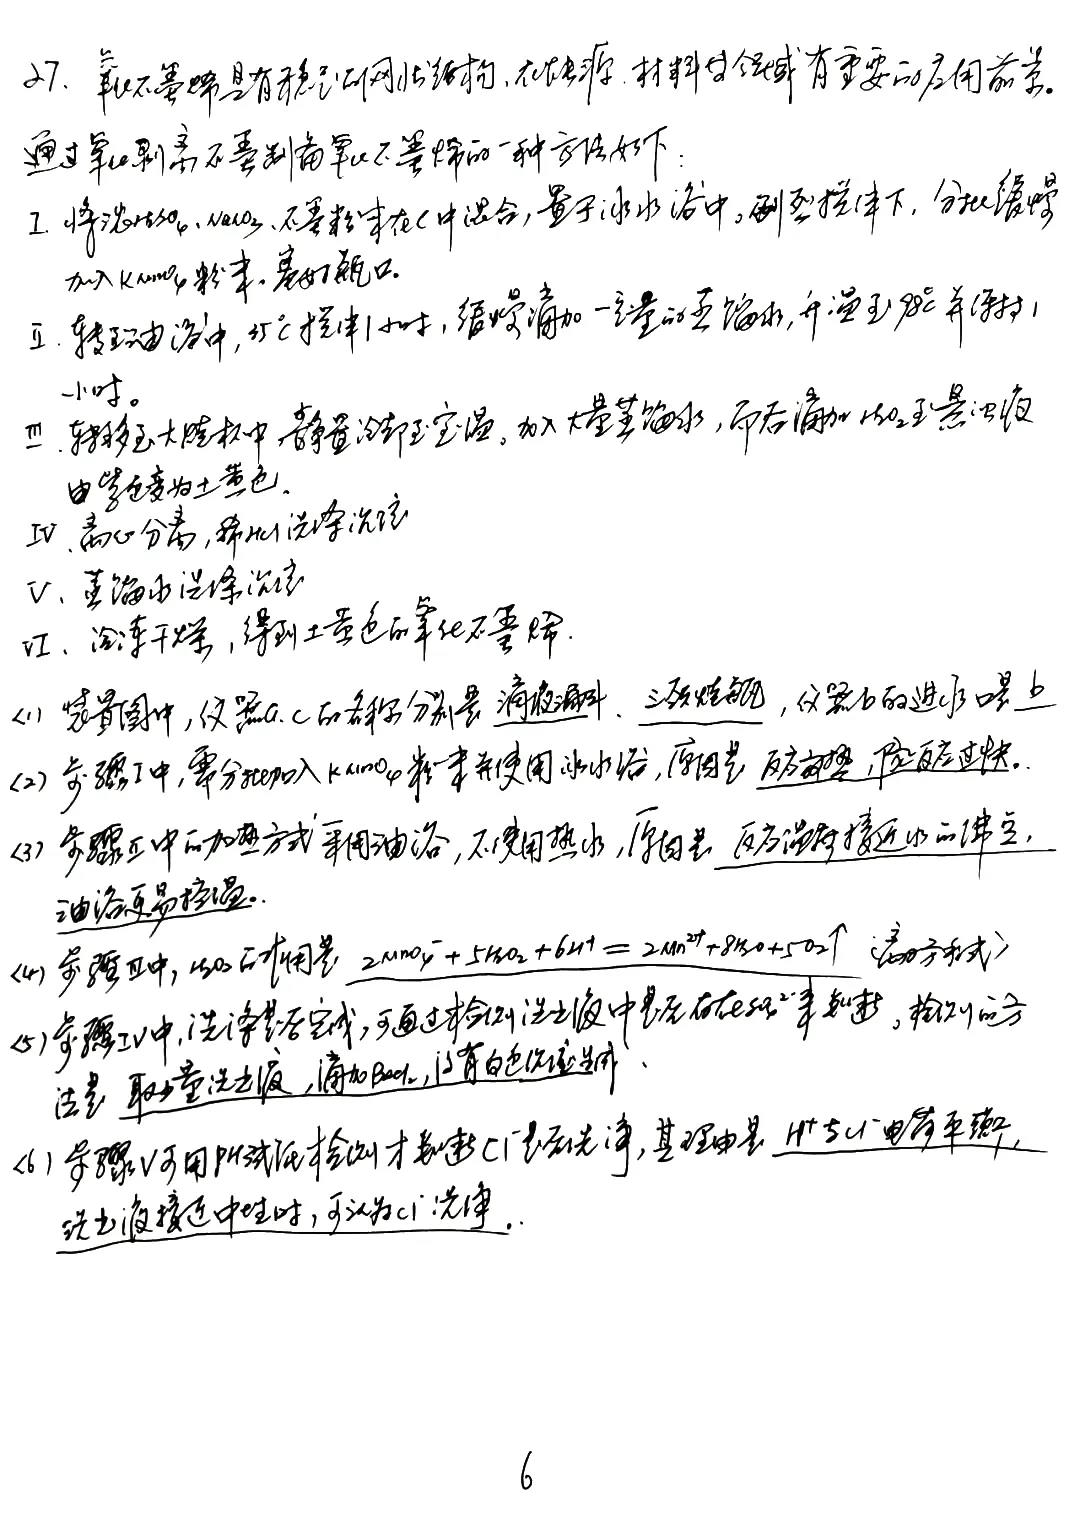 27. 氧化石墨烯具有稳定的网状结构,在能源.材料等领域有重要的应用前景。
通过氧化剥离石墨制备氧化石墨烯的一种方法如下:
I. 将浓H₂SO₄、NaNO₃、石墨粉末在C中混合,置于冰水浴中。剧烈搅拌下,分批缓慢
加入KMnO₄粉末。塞好瓶口。
II. 转至油浴中,35℃搅拌1小时,缓慢滴加一定量的蒸馏水,升温至98℃并保持1
小时。
III. 转移至大烧杯中,静置冷却至室温。加入大量蒸馏水,而后滴加H₂O₂至悬浊液
由紫色变为土黄色.
IV. 离心分离,稀HCl洗涤沉淀
V. 蒸馏水洗涤沉淀
VI. 冷冻干燥,得到土黄色的氧化石墨烯.
<1> 装置图中,仪器a.c的名称分别是 滴液漏斗、三颈烧瓶,仪器b的进水口是 b
<2> 步骤I中,需分批加入KMnO₄粉末并使用冰水浴,原因是 反应放热,防止反应过快.
<3> 步骤II中的加热方式采用油浴,不使用热水,原因是 反应温度接近水的沸点,
油浴更易控温.
<4> 步骤III中,H₂O₂的作用是 2MnO₄⁻+5H₂O₂+6H⁺=2Mn²⁺+8H₂O+5O₂↑ (离子方程式)
<5> 步骤IV中,洗涤是否完成,可通过检测洗出液中是否存在SO₄²⁻来判断。检测的方
法是 取少量洗出液,滴加BaCl₂,没有白色沉淀生成.
<6> 步骤V可用PH试纸检测来判断Cl⁻是否洗净,其理由是 H⁺与Cl⁻电荷平衡,
洗出液接近中性时,可认为Cl⁻洗净.
6